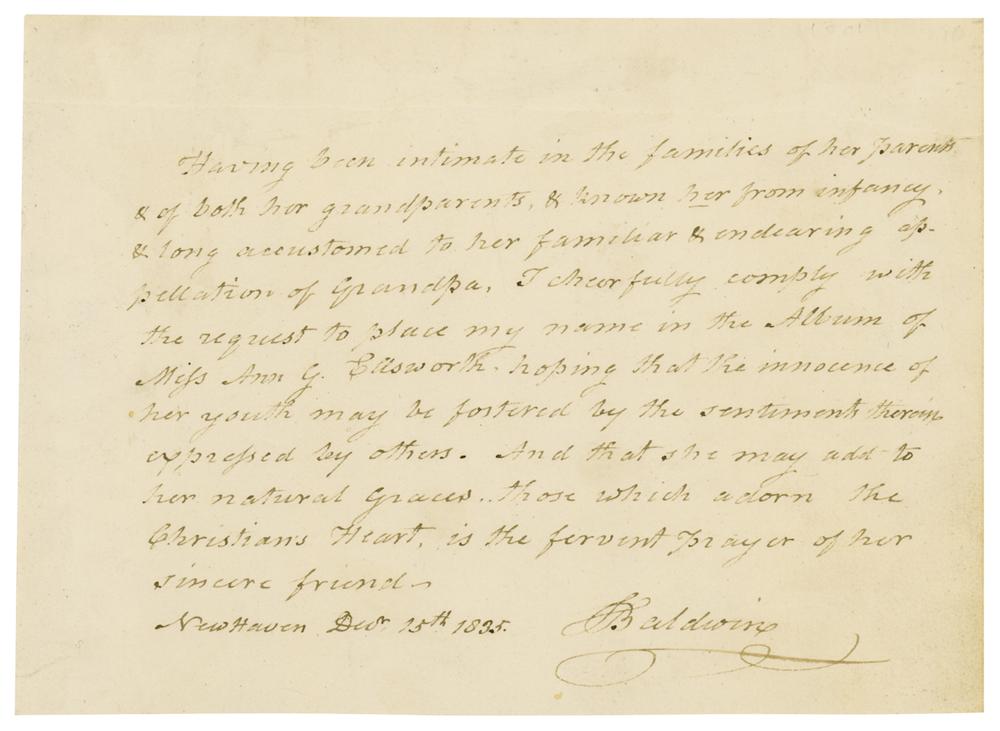 Having been intimate in the families of her parents
& of both her grandparents, & known her from infancy,
& long accustomed to her familiar & endearing ap-
pellation of Grandpa, I cheerfully comply with
the request to place my name in the Album of
Miss Ann G. Ellsworth. hoping that the innocence of
her youth may be fostered by the sentiments therein
expressed by others. And that she may add to
her natural Graces.. those which adorn the
Christians Heart, is the fervent prayer of her
sincere friend
New Haven Decr. 15th 1835. SBaldwin